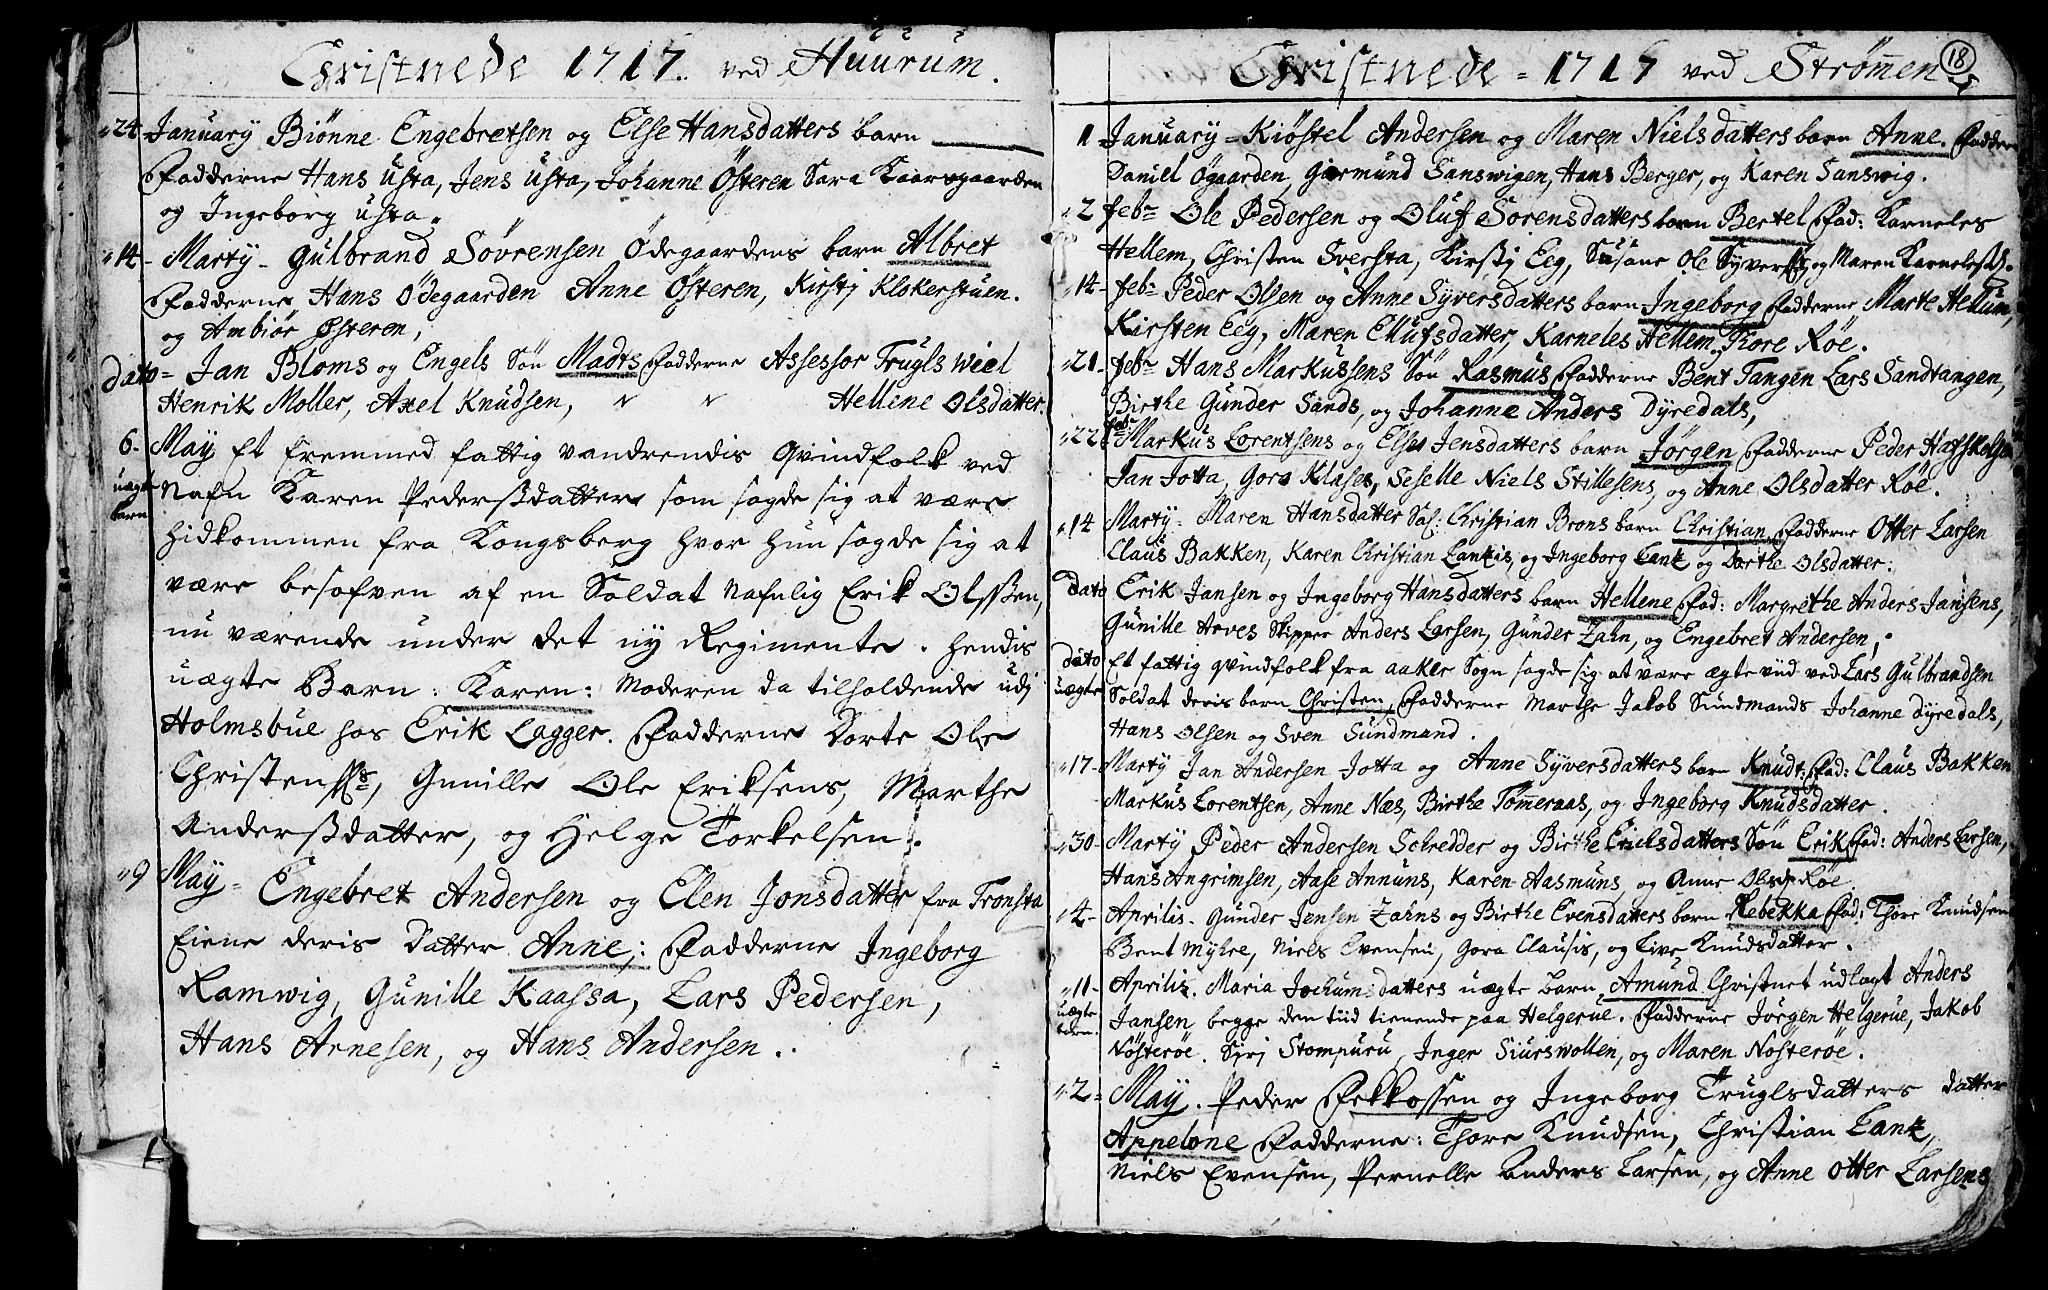 Christnede 1717. ved Huurum.
24 January Biönne Engebretsen og Else Hansdatters barn
Fadderne Hans Usta, Jens Usta, Johanne Österen Sara Kaarsgaarden
og Ingeborg Usta.
14 Marty Gulbrand Sövrensen Ödegaardens barn Albret
Fadderne Hans Ödegaarden Anne Österen, Kirstj Klokerstuen.
og Ambiör Österen,
dato Jan Bloms og Engels Sön Madts Fadderne Assessor Trugls Wiel
Henrik Moller, Axel Knudsen, Hellene Olsdatter.
6. May Et fremmed fattig vandrendis Qvindfolk ved
uægte Nafn Karen Pedersdatter som sagde sig at være
barn hidkommen fra Kongsberg hvor hun sagde sig at
være besofven af en Soldat Nafnlig Erik Olssen,
nu værende under det ny Regimente. hendis
uægte Barn: Karen: Moderen da tilholdende udj
Holmsbue hos Erik Lagger. Fadderne Dorte Ole
Christens, Gunille Ole Eriksens, Marthe
Andersdatter, og Helge Torkelsen.
9 May Engebret Andersen og Elen Jonsdatter fra Tronsta
Eiene deris Datter Anne; Fadderne Ingeborg
Ramwig, Gunille Kaassa, Lars Pedersen,
Hans Arnesen, og Hans Andersen.
Christnede 1717 ved Strömen
18
1 January Kiöstel Andersen og Maren Nielsdatters barn Anne. Fadderne
Daniel Ögaarden, Giermund Sanswigen, Hans Berger, og Karen Sanswig.
2 feb Ole Pedersen og Oluf Sörensdatters barn Bertel Fad: Karneles
Hellem, Christen Sversta, Kirstj Eeg, Susane Ole Syvers og Maren Karneles
14 feb: Peder Olsen og Anne Syversdatters barn Ingeborg Fadderne Marte Hellum,
Kirsten Eeg, Maren Ellufsdatter, Karneles Hellem, Thore Röe.
21 feb Hans Markussens Sön Rasmus Fadderne Bent Tangen Lars Sandtangen,
Birthe Gunder Sands, og Johanne Anders Dyredals,
22 feb: Markus Lorentsens og Else Jensdatters barn Jörgen Fadderne Peder
Jan Jotta, Gora Klases, Seselle Niels Stillesens, og Anne Olsdatter Röe.
14 Marty Maren Hansdatter Sal: Christian Brons barn Christian Fadderne Otter Larsen
Claus Bakken, Karen Christian Lankis, og Ingeborg Lank og Dorthe Olsdatter.
dato Erik Jansen og Ingeborg Hansdatters barn Hellene Fad: Margrethe Anders Jansens,
Gunille Arves Skipper Anders Larsen, Gunder Zahn, og Engebret Andersen;
dato Et fattig qvindfolk fra aaker Sogn sagde sig at være ægte viid ved Lars Gulbrandsen
uægte Soldat deris barn Christen, Fadderne Marthe Jakob Sundmands Johanne Dyredals,
Hans Olsen og Sven Sundmand.
17 Marty Jan Andersen Jotta og Anne Syversdatters barn Knudt: Fad: Claus Bakken
Markus Lorentsen, Anne Næs, Birthe Tömeraas, og Ingeborg Knudsdatter.
30 Marty Peder Andersen Schredder og Birthe Erichsdatters Sön Erik Fad: Anders Larsen,
Hans Angrimsen, Aase Annuns, Karen Aasmuns, og Anne Olsd Röe
4 Aprilis Gunder Jensen Zahns og Birthe Evensdatters barn Rebekka Fad: Thore Knudsen
Bent Myhre, Niels Evensen, Gora Clausis, og Live Knudsdatter.
11 Aprilis. Maria Jochumsdatters uægte barn Amund Christnet udlagt Anders
uægte Jansen begge den tiid tienende paa Helgerue. Fadderne Jörgen Helgerue, Jakob
Nösteröe. Sirj Stompuru, Inger Siurswollen, og Maren Nosteröe.
2 May. Peder Fekkossen og Ingeborg Truglsdatters datter
Appelone Fadderne: Thore Knudsen, Christian Lank,
Niels Evensen, Pernelle Anders Larsen, og Anne Otter Larsens